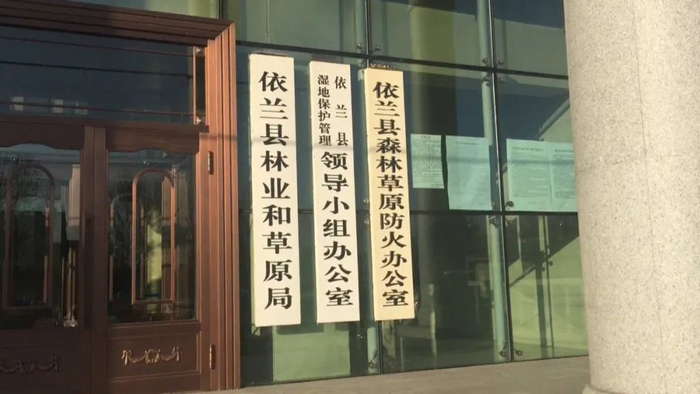 依兰县林业和草原局
依兰县
湿地保护管理
领导小组办公室
依兰县森林草原防火办公室